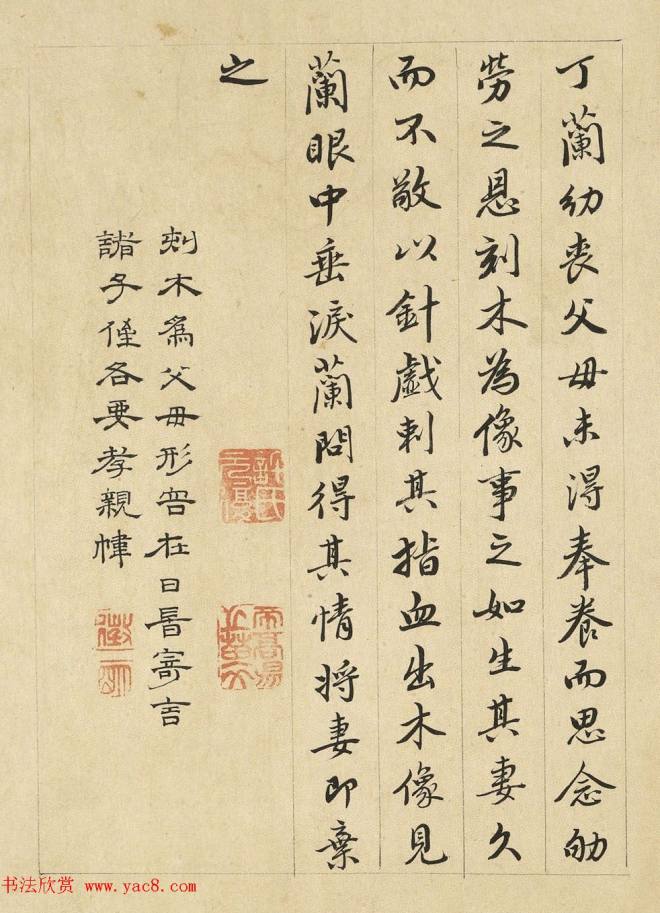 丁蘭幼丧父母未得奉養而思念劬
勞之恩刻木為像事之如生其妻久
而不敬以針戯刺其指血出木像見
蘭眼中垂淚蘭問得其情將妻即棄
之
刻木爲父母形容在日昬寄言
諸子侄各要孝親幃
徵明
书法欣赏 www.yac8.com